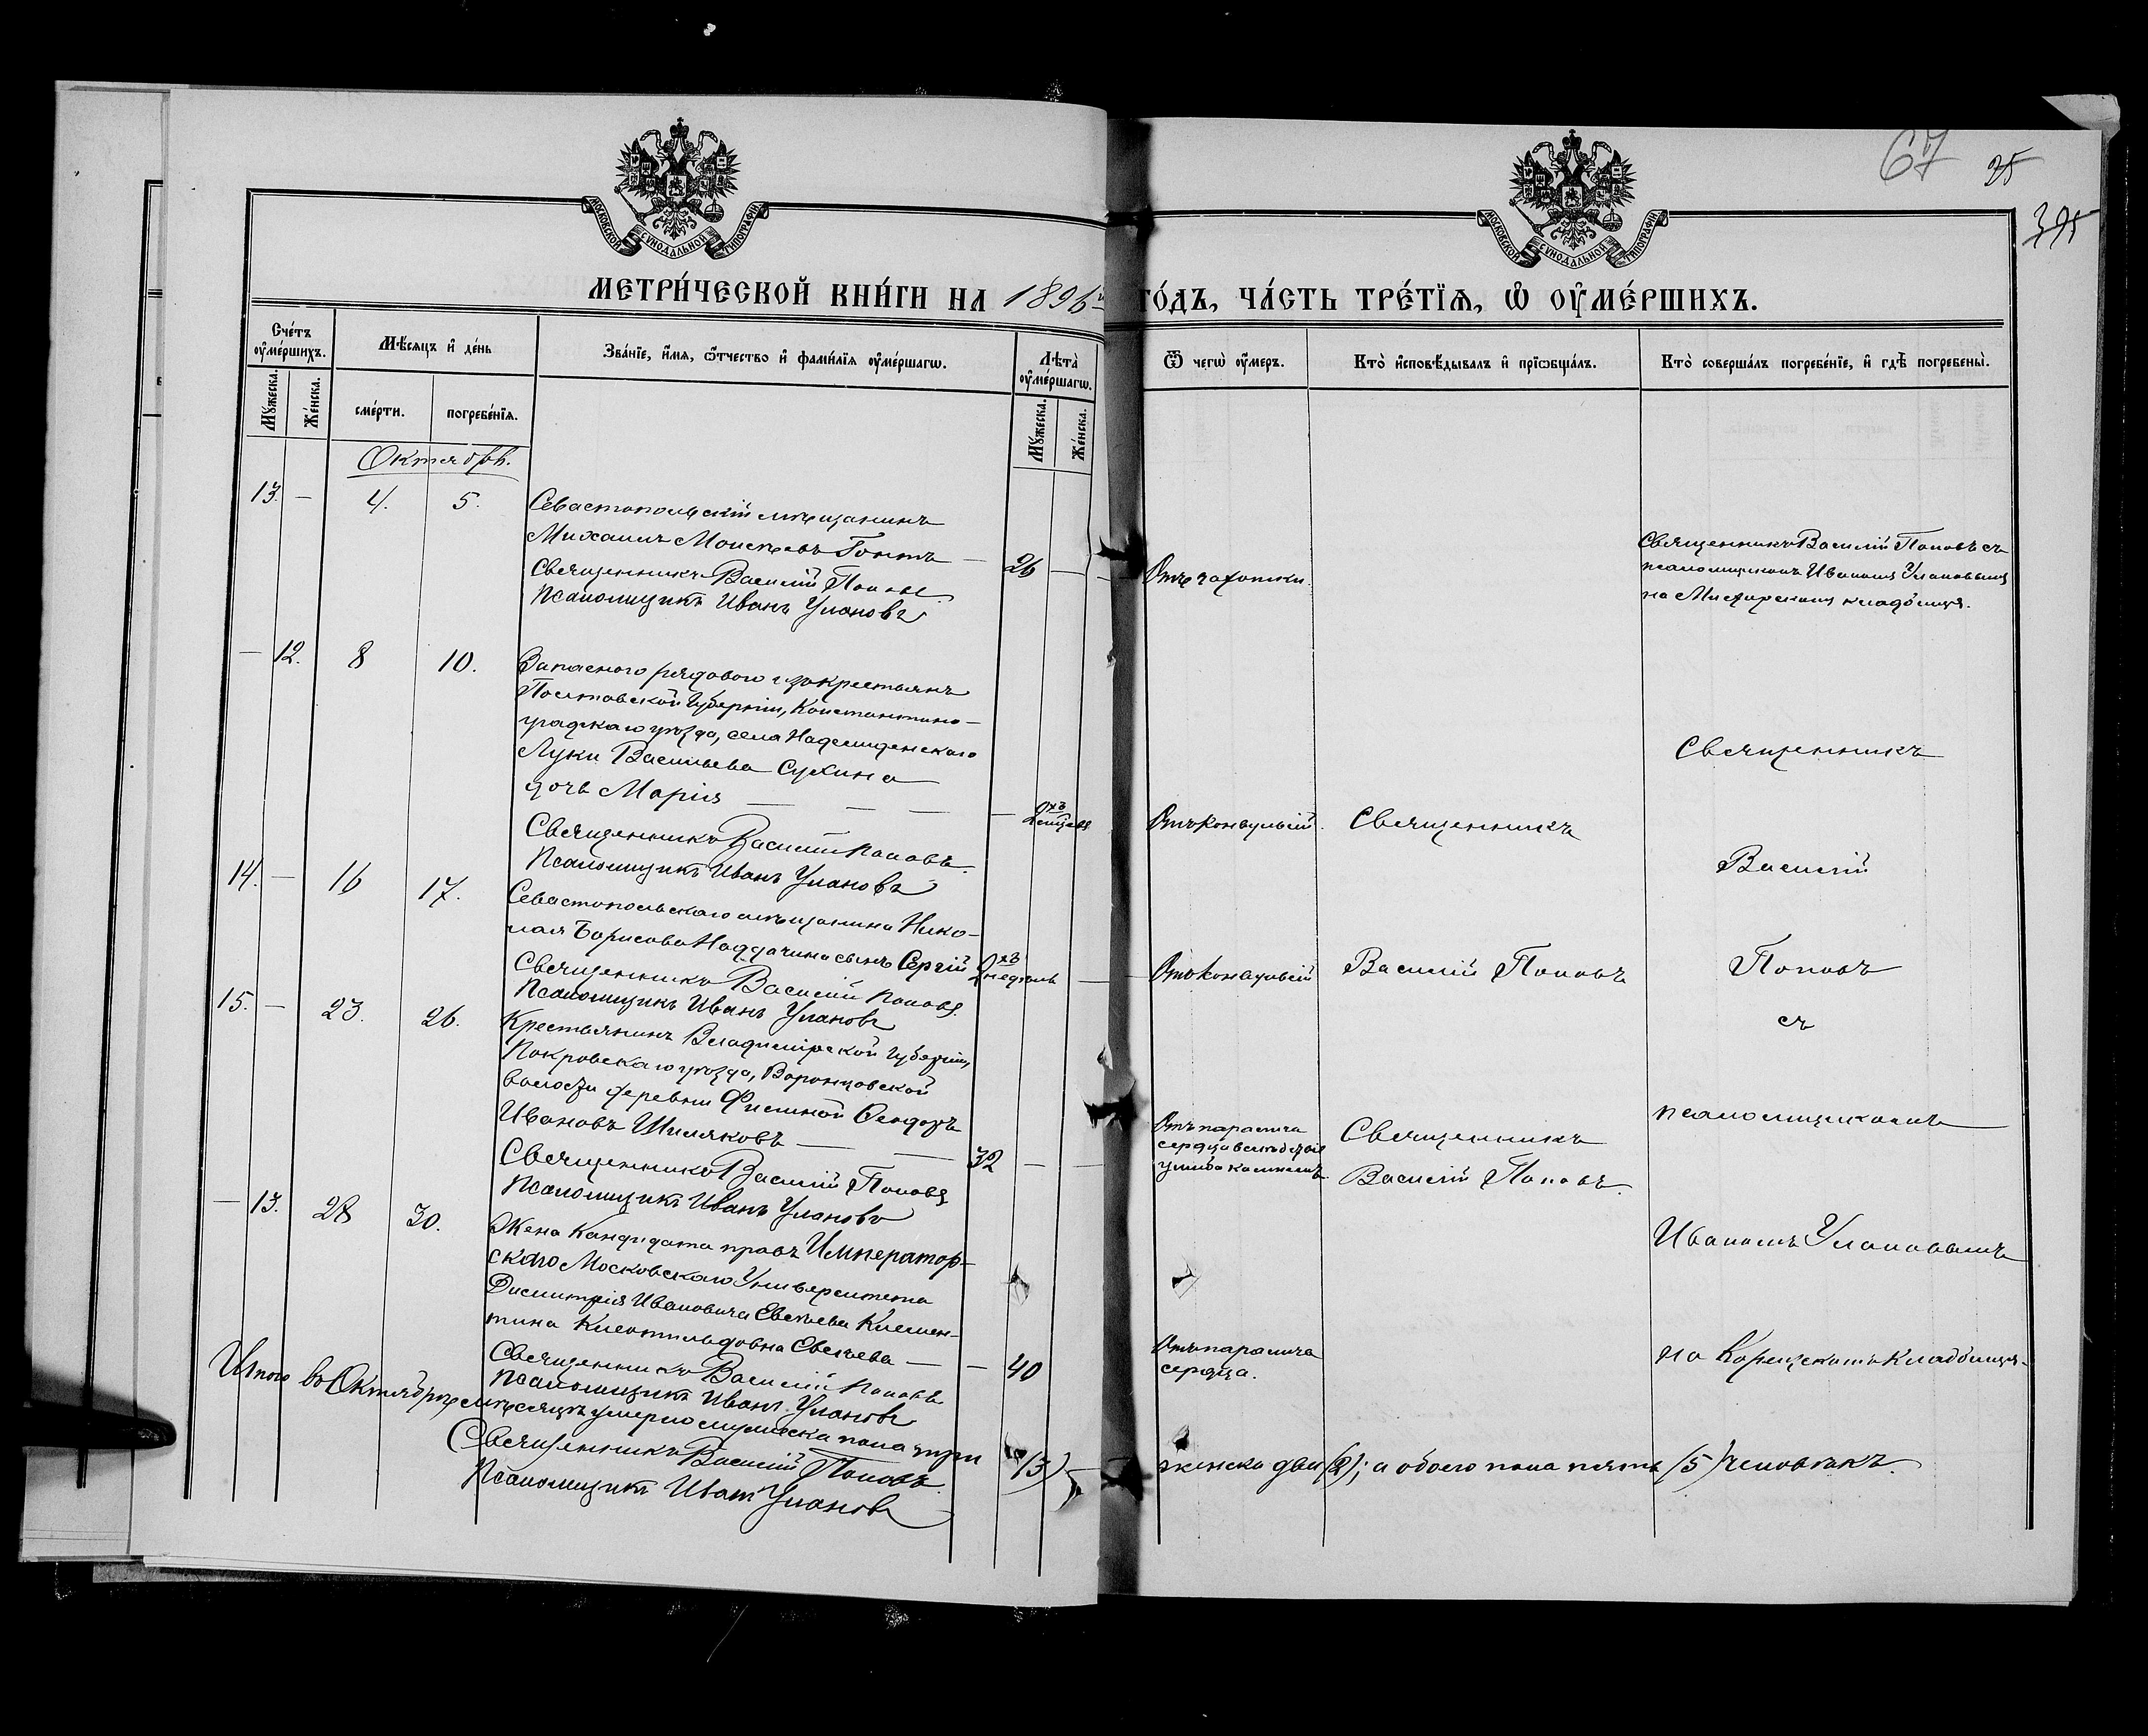 67 95
395
МОСКОВСКОЙ СѴНОДАЛЬНОЙ ТИПОГРАФІИ
МОСКОВСКОЙ СѴНОДАЛЬНОЙ ТИПОГРАФІИ
МЕТРИ́ЧЕСКОЙ КНИ́ГИ НА 1896й ГО́ДЪ, ЧА́СТЬ ТРЕ́ТЇѦ, Ѡ҆ ОУ҆МЕ́РШИХЪ.
Сче́тъ оу҆ме́ршихъ.
Мꙋ́жеска.
Же́нска.
Мѣ́сяцъ и҆ де́нь
сме́рти.
погребе́нїѧ.
Зва́нїе, и҆́мѧ, ѻ҆́тчество и҆ фами́лїѧ оу҆ме́ршагѡ.
Лѣ́та оу҆ме́ршагѡ.
Мꙋ́жеска.
Же́нска.
Ѿ чегѡ̀ оу҆́меръ.
Кто̀ и҆сповѣ́дывалъ и҆ прїѡбща́лъ.
Кто̀ соверша́лъ погребе́нїе, и҆ гдѣ̀ погребены̀.
Октябрь.
13. — 4. 5.
Севастопольскій мѣщанинъ
Михаилъ Моисеевъ Гонтъ — 26 — —
Священникъ Василій Поповъ
Псаломщикъ Иванъ Улановъ
Отъ чахотки
Священникъ Василій Поповъ съ
псаломщикомъ Иваномъ Улановымъ
на кладбищѣ.
— 12. 8 10.
Запаснаго рядового изъ крестьянъ
Полтавской Губерніи, Константино-
градскаго уѣзда, села
Луки Васильева Сухина
дочь Марія — — — — 2хъ мѣсяцевъ
Священникъ Василій Поповъ.
Псаломщикъ Иванъ Улановъ
Отъ конвульсій. Священникъ
Священникъ
Василій
14. — 16 17.
Севастопольскаго мѣщанина Нико-
лая Борисова сынъ Сергій 2хъ недѣль — —
Священникъ Василій Поповъ.
Псаломщикъ Иванъ Улановъ
Отъ конвульсій Василій Поповъ
Поповъ
съ
15. — 23. 26.
Крестьянинъ Владимірской губерніи,
Покровскаго уѣзда, Воронцовской
волости деревни Ѳеодоръ
Ивановъ Шиляковъ — — 32 — —
Священникъ Василій Поповъ
Псаломщикъ Иванъ Улановъ
Отъ паралича
сердца вслѣдствіе
ушиба камнемъ.
Священникъ
Василій Поповъ.
псаломщикомъ
— 13. 28 30.
Жена Кандидата правъ Император-
скаго Московскаго Университета
Димитрія Ивановича Евсѣева Клемен-
тина Евсѣева — — 40
Священникъ Василій Поповъ
Псаломщикъ Иванъ Улановъ
Отъ паралича
сердца.
Иваномъ Улановымъ
на кладбищѣ.
Итого въ Октябрѣ мѣсяцѣ умерло мужеска пола три (3) — женска два (2); а обоего пола пять (5) человѣкъ.
Священникъ Василій Поповъ.
Псаломщикъ Иванъ Улановъ